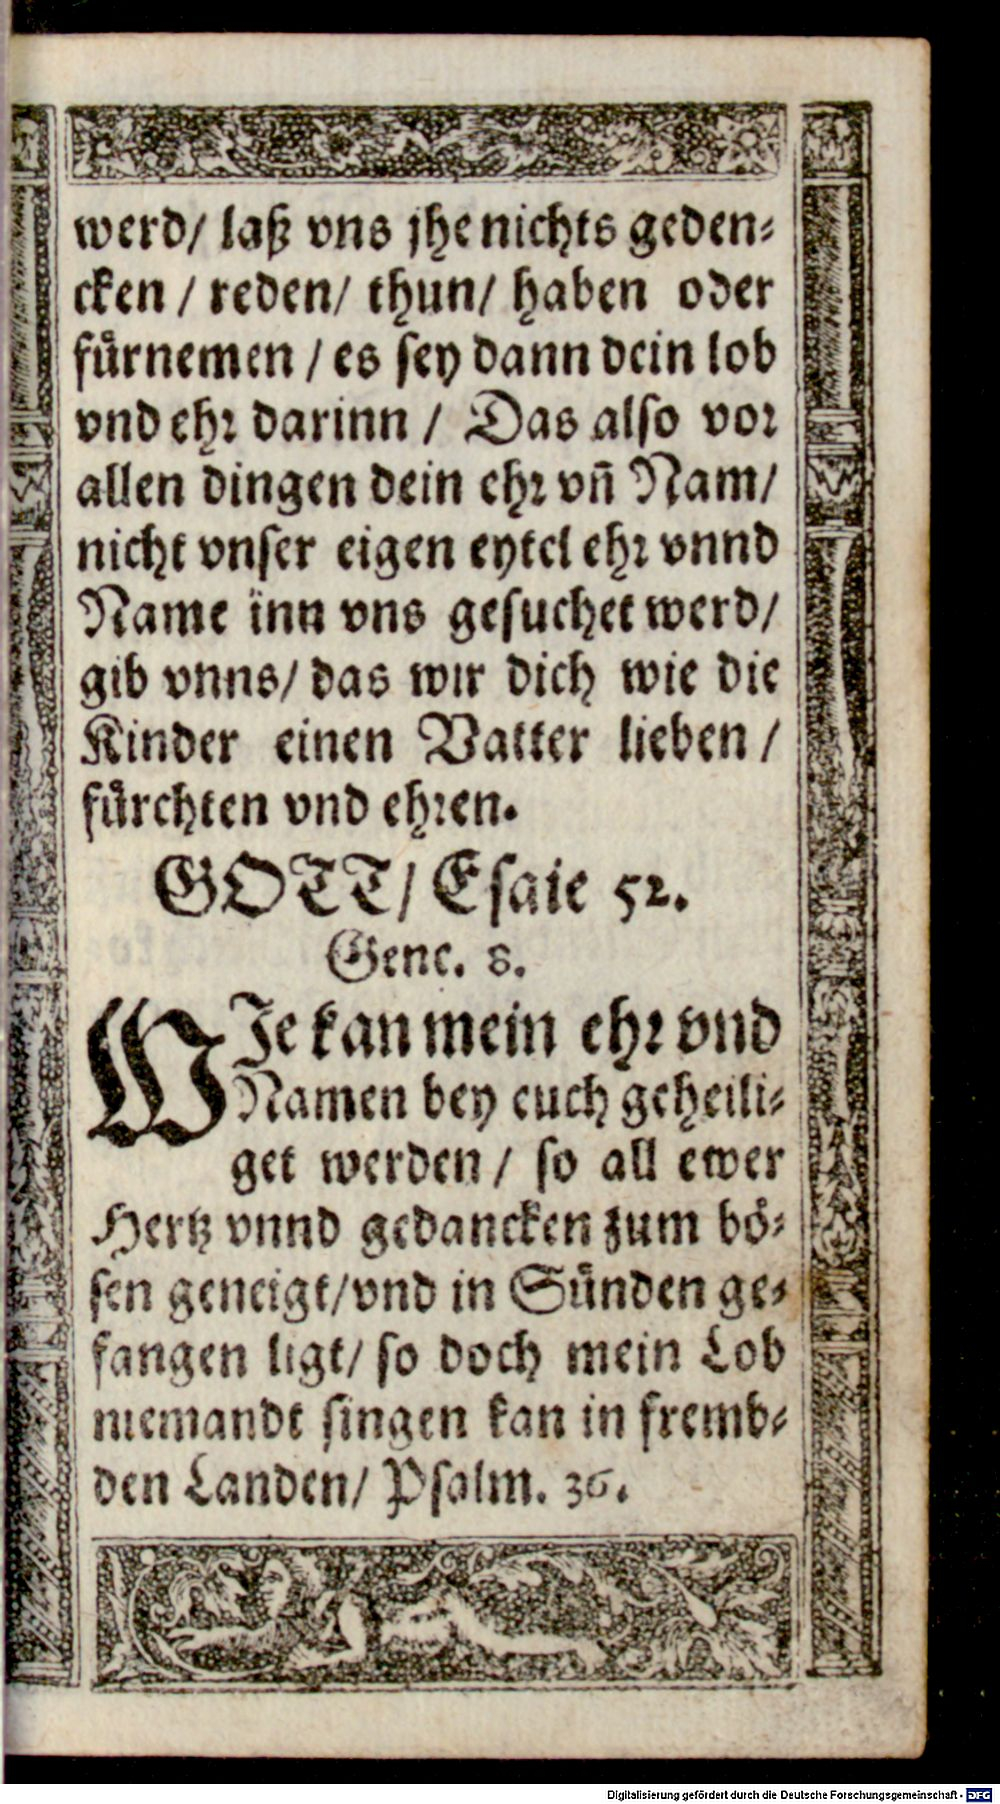 werd/ laß vns jhe nichts geden⸗
cken / reden/ thun/ haben oder
fuͤrnemen / es sey dann dein lob
vnd ehr darinn / Das also vor
allen dingen dein ehr vñ Nam/
nicht vnser eigen eytel ehr vnnd
Name inn vns gesuchet werd/
gib vnns/ das wir dich wie die
Kinder einen Vatter lieben /
fuͤrchten vnd ehren.
GOTT/ Esaie 52.
Gene. 8.
WJe kan mein ehr vnd
Namen bey euch geheili⸗
get werden / so all ewer
Hertz vnnd gedancken zum boͤ⸗
sen geneigt/vnd in Suͤnden ge⸗
fangen ligt/ so doch mein Lob
niemandt singen kan in fremb⸗
den Landen/ Psalm. 36.
Digitalisierung gefördert durch die Deutsche Forschungsgemeinschaft - DFG